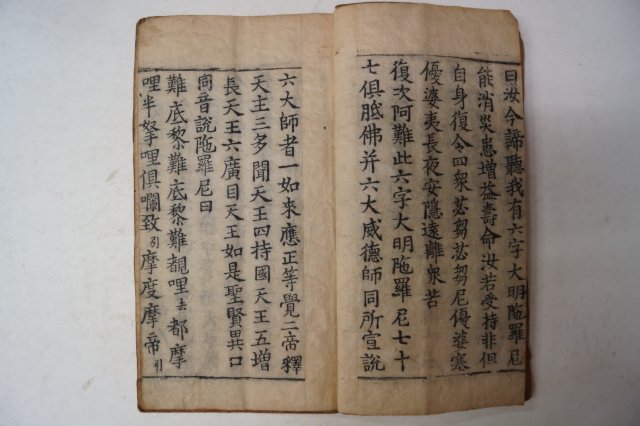 曰汝今諦聽我有六字大明陁羅尼
能消災患增益壽命汝若受持非但
自身復令四衆苾芻苾芻尼優婆塞
優婆夷長夜安隱遠離衆苦
復次阿難此六字大明陁羅尼七十
七俱胝佛并六大威德師同所宣說
六大師者一如來應正等覺二帝釋
天主三多聞天王四持國天王五增
長天王六廣目天王如是聖賢異口
同音說陁羅尼曰
難底黎難底黎難覩哩去都摩
哩半拏哩俱嚩致引摩度摩帝引